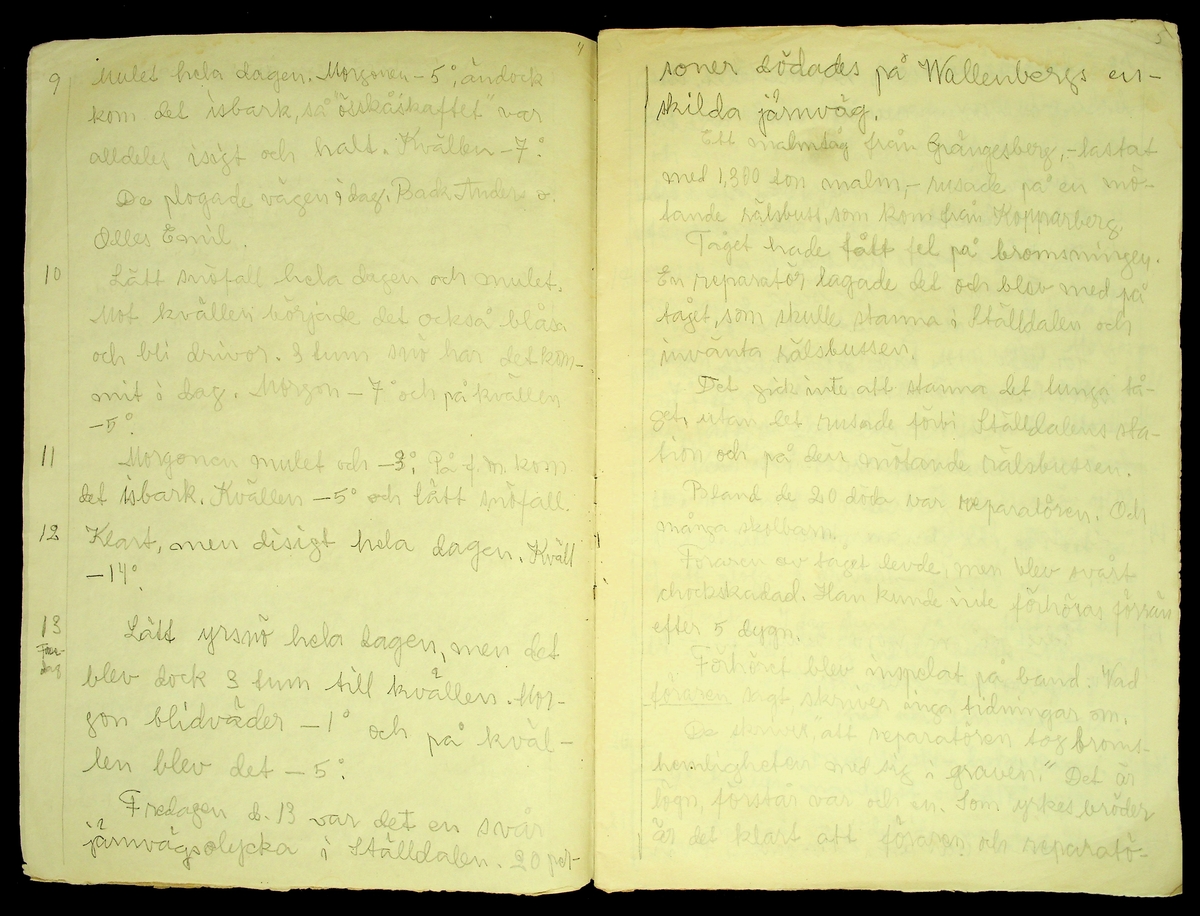 9 Mulet hela dagen. Morgonen -5°, ändock
kom det isbark, så "össkåskaftet" var
alldeles isigt och halt. Kvällen -7°.
De plogade vägen i dag. Back Anders o.
Olles Emil.
10 Lätt snöfall hela dagen och mulet.
Mot kvällen började det också blåsa
och bli drivor. 3 tum snö har det kom-
mit i dag. Morgon -7° och på kvällen
-5°.
11 Morgonen mulet och -3°. På f.m. kom
det isbark. Kvällen -5° och lätt snöfall.
12 Klart, men disigt hela dagen. Kväll
-14°.
13 Lätt yrsnö hela dagen, men det
blev dock 3 tum till kvällen. Mor-
gon blidväder -1° och på kväl-
len blev det -5°.
Fredagen d. 13 var det en svår
järnvägsolycka i Ställdalen. 20 per-
5
soner dödades på Wallenbergs en-
skilda järnväg.
Ett malmtåg från Grängesberg, - lastat
med 1,380 ton malm, - rusade på en mö-
tande rälsbuss, som kom från Kopparberg.
Tåget hade fått fel på bromsningen.
En reparatör lagade det och blev med på
tåget, som skulle stanna i Ställdalen och
invänta rälsbussen.
Det gick inte att stanna det tunga tå-
get, utan det rusade förbi Ställdalens sta-
tion och på den mötande rälsbussen.
Bland de 20 döda var reparatören. Och
många skolbarn.
Föraren av tåget levde, men blev svårt
chockskadad. Han kunde inte förhöras förrän
efter 5 dygn.
Förhöret blev inspelat på band. Vad
föraren sagt skriver inga tidningar om.
De skriver, "att reparatören tog broms-
hemligheten med sig i graven." Det är
lögn, förstår var och en. Som yrkesbröder
är det klart att föraren och reparatö-